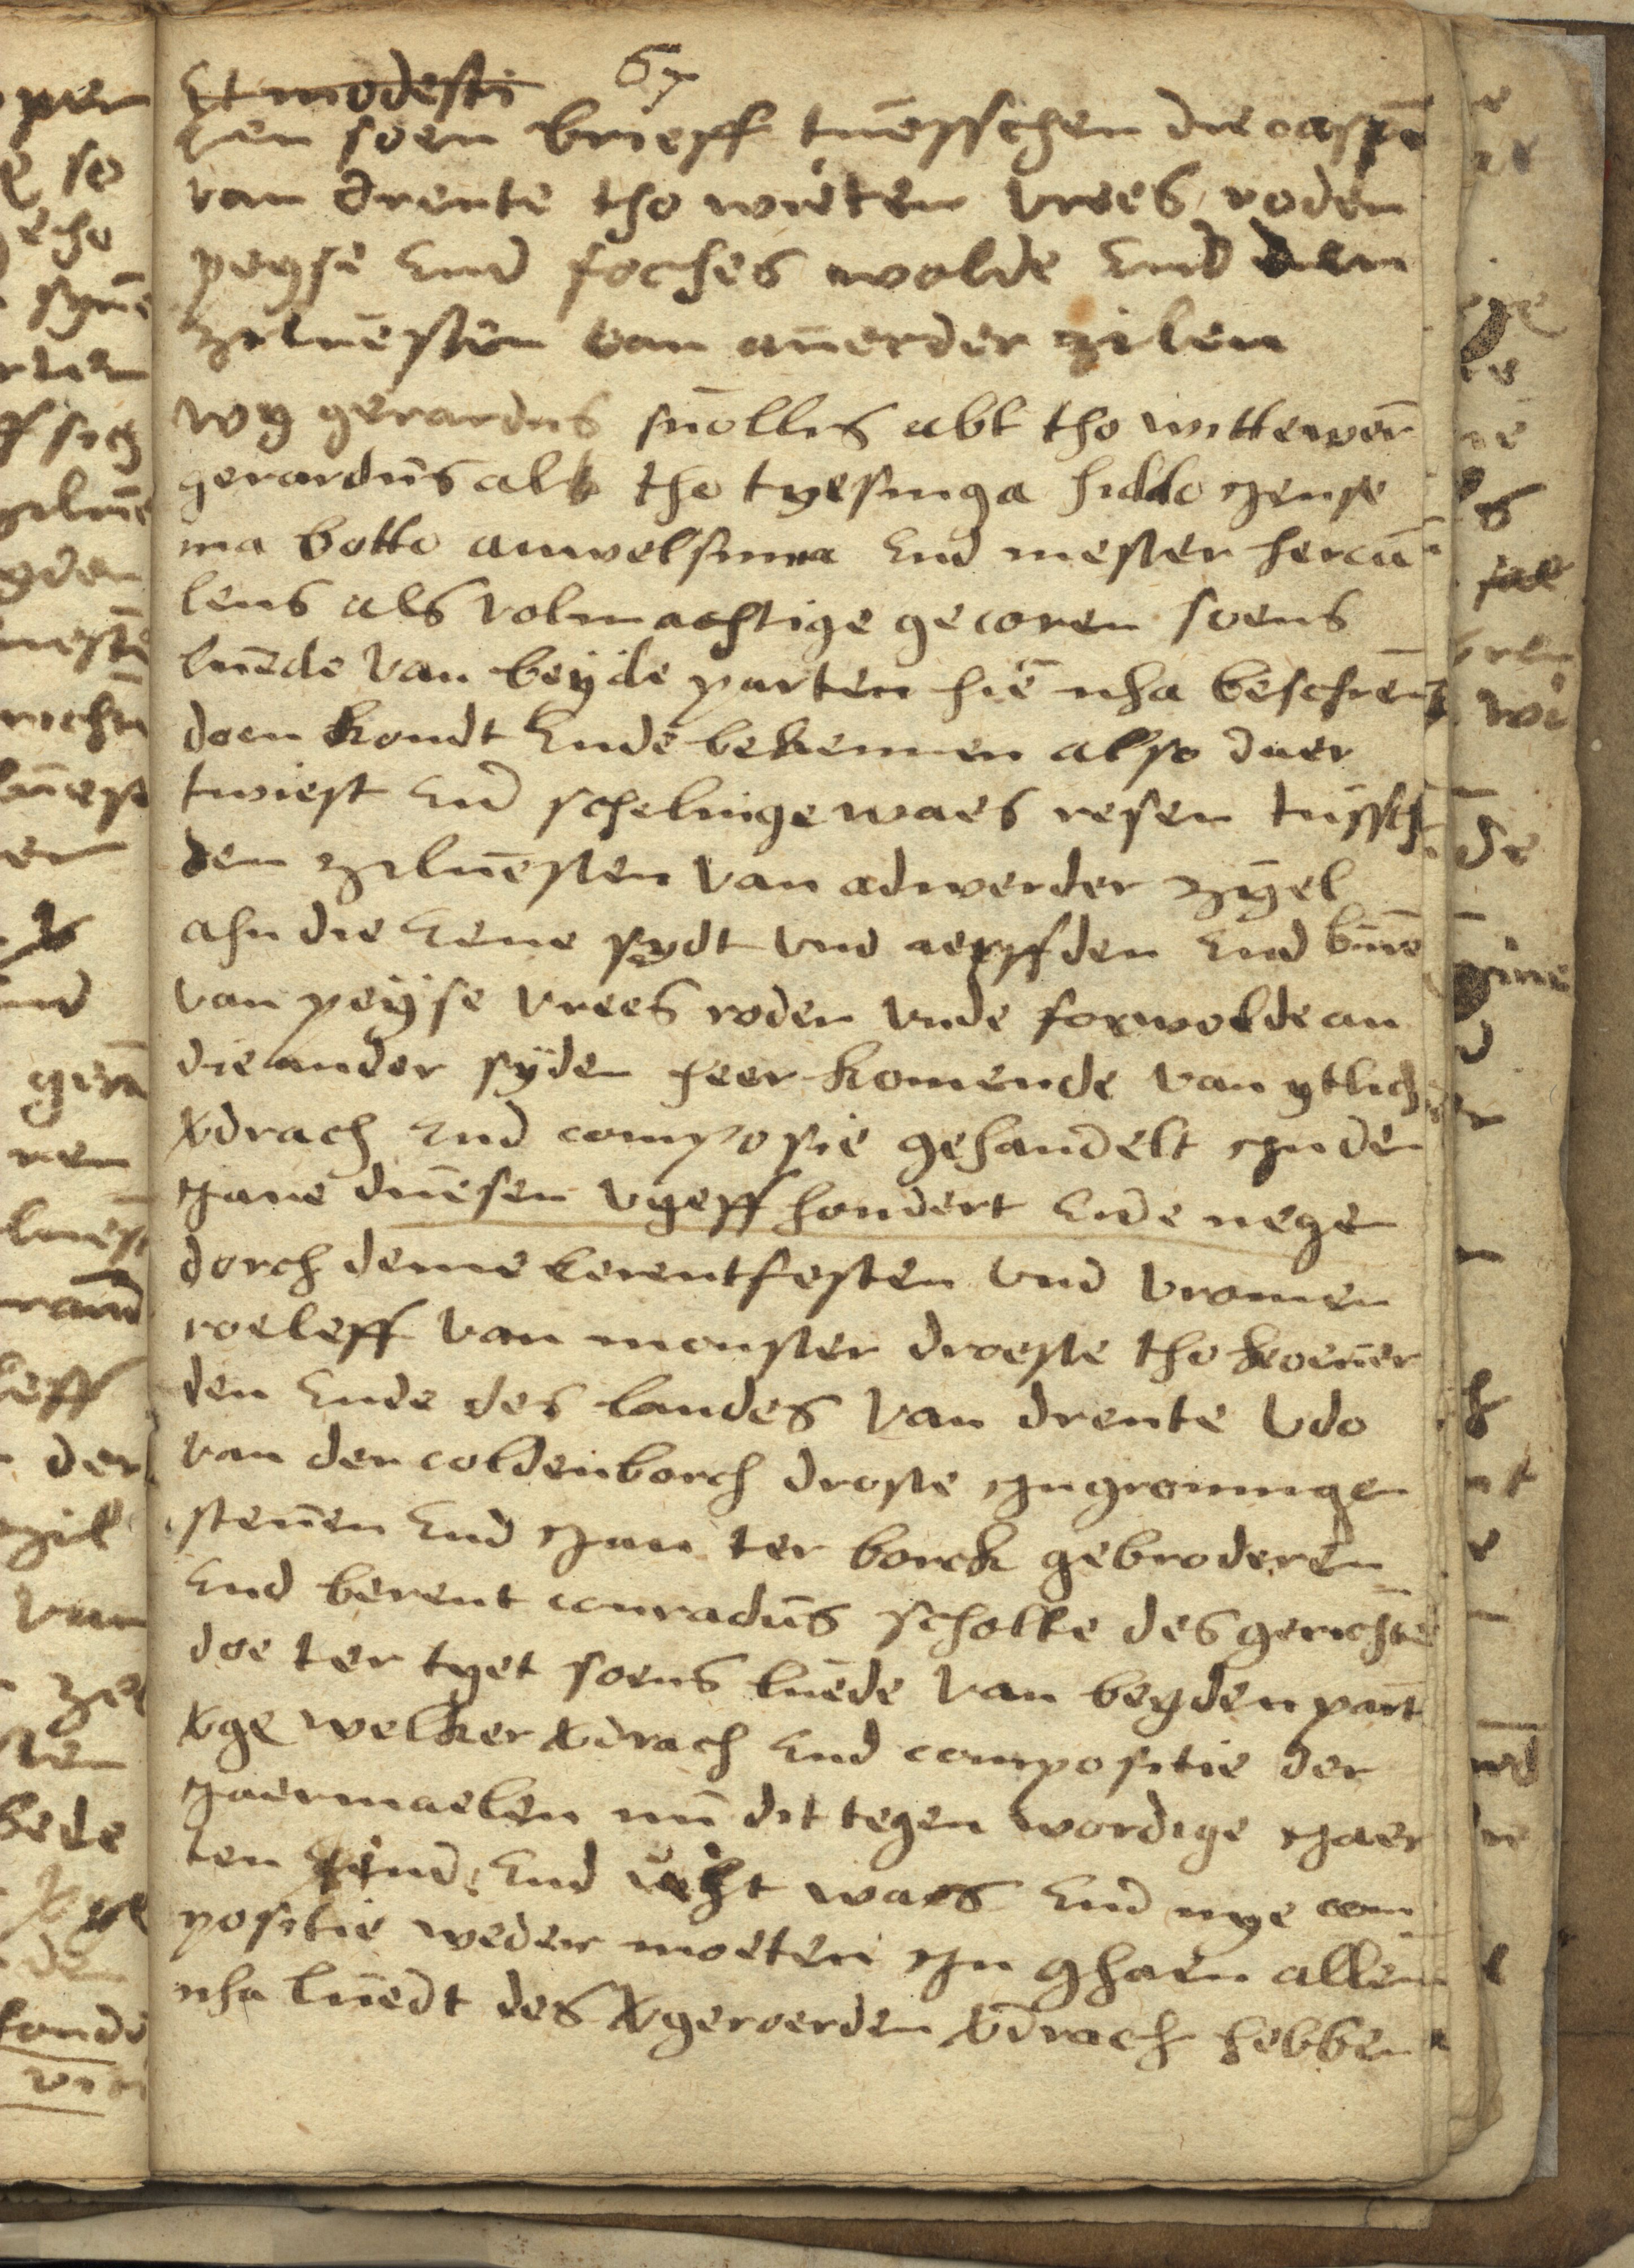 67
Et modesti
Een soen brieff tuesschen die caspē
van drente tho weten vrees roden
peyse End foches wolde End den
zeluesten van auerder zilen
wy gerardus suollis abt tho wittewer
gerardus abt tho tyesinga hiddo yense
ma botto auwelsma End mester hercu
lens als volmachtige gecoren soens
luede van beyde parten hie nha beschreu
doen kondt Ende bekennen also duer
twiest End schelinge waes resen tussch
den zyluesten van adwerder zyel
ahn die Eene sydt vnd aerffden End bure
van peyse vrees roden vnde foxwolde an
die ander syden heer komende van ytlich
v̄drach End composie gehandelt yn den
yare duesen vyeff hondert Ende negen
dorch denne Eerentfesten vnd vromen
roeleff van monster droeste tho koeuer
den Ende des landes van drente vdo
van den coldenborch droste yn groninge
steuen End yan ter borck gebroderen
End berent conradus scholte des gerichte
doe ter tyet soens luede van beyden part
v̄ge welker v̄drach End compositie der
yaermaelen nu dit tegen wordige yaer
ten Eind End vth waes End nye com
positie weder moeten yn ghaen allen
nha luedt des v̄geroerden v̄drach hebben